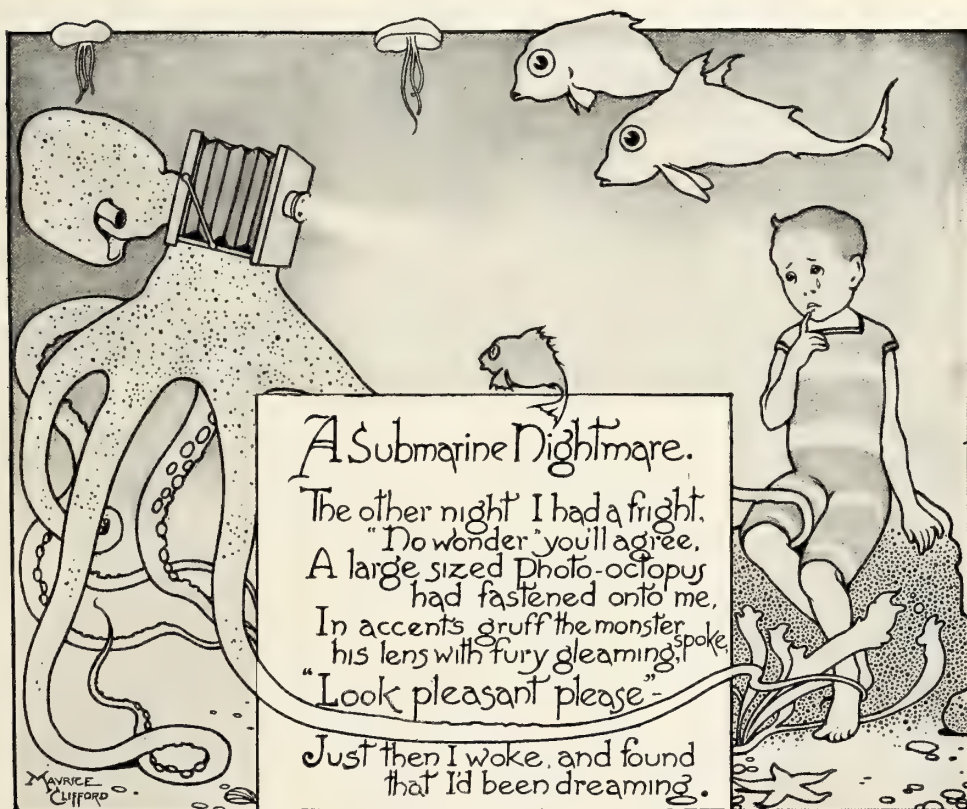 A Submarine Nightmare.
The other night I had a fright,
"No wonder" you'll agree,
A large sized Photo-octopus
had fastened onto me,
In accents gruff the monster spoke,
his lens with fury gleaming,
"Look pleasant please"-
Just then I woke, and found
that I'd been dreaming.
MAVRICE
CLIFFORD